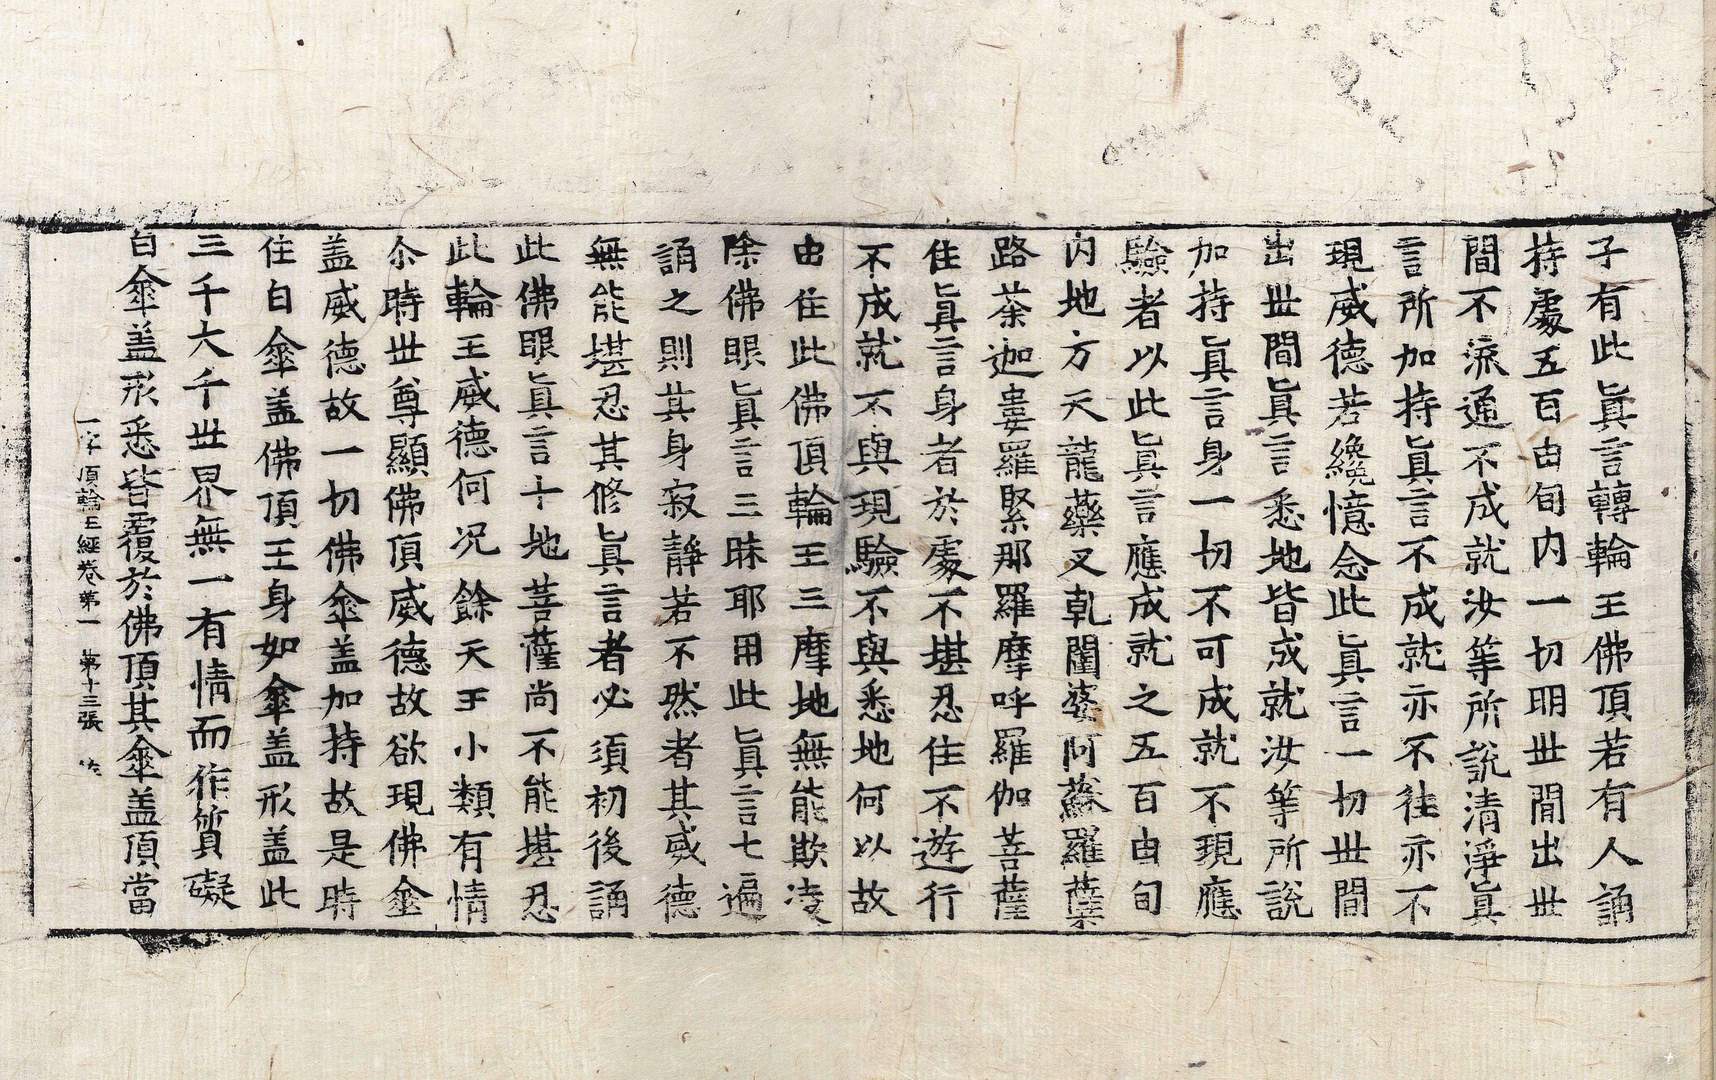 子有此眞言轉輪王佛頂若有人誦
持處五百由旬内一切明世閒出世
間不流通不成就汝等所說清淨眞
言所加持眞言不成就亦不往亦不
現威德若纔憶念此眞言一切世間
出世間眞言悉地皆成就汝等所說
加持眞言身一切不可成就不現應
驗者以此眞言應成就之五百由旬
内地方天龍藥叉乹闥婆阿蘇羅蘖
路荼迦婁羅緊那羅摩呼羅伽菩薩
住眞言身者於處不堪忍住不遊行
不成就不與現驗不與悉地何以故
由住此佛頂輪王三摩地無能欺凌
除佛眼眞言三昧耶用此眞言七遍
誦之則其身寂靜若不然者其威德
無能堪忍其修眞言者必須初後誦
此佛眼眞言十地菩薩尚不能堪忍
此輪王威德何况餘天王小類有情
尒時世尊顯佛頂威德故欲現佛傘
盖威德故一切佛傘盖加持故是時
住白傘盖佛頂王身如傘盖形盖此
三千大千世界無一有情而作質礙
白傘盖形悉皆覆於佛頂其傘盖頂當
一字頂輪王經卷第一 第十三張